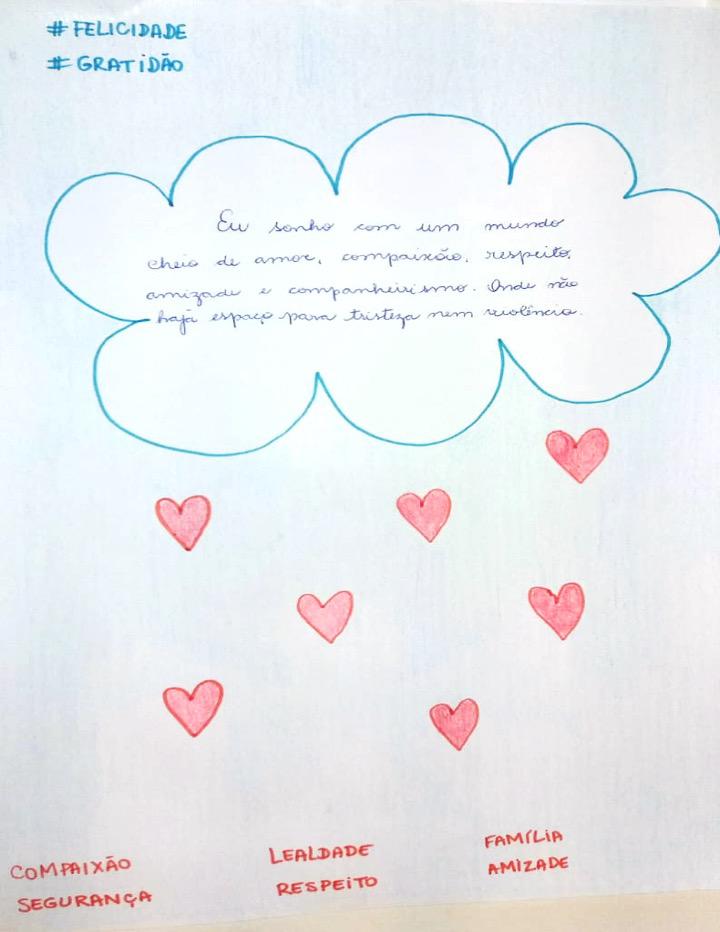 #FELICIDADE
#GRATIDÃO
Eu sonho com um mundo
cheio de amor, compaixão, respeito,
amizade e companheirismo. Onde não
hajá espaço para tristeza nem violência.
COMPAIXÃO
SEGURANÇA
LEALDADE
RESPEITO
FAMÍLIA
AMIZADE